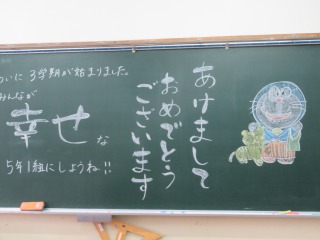 ついに3学期が始まりました。
みんなが
幸せな
5年1組にしようね!!
あけまして
おめでとう
ございます